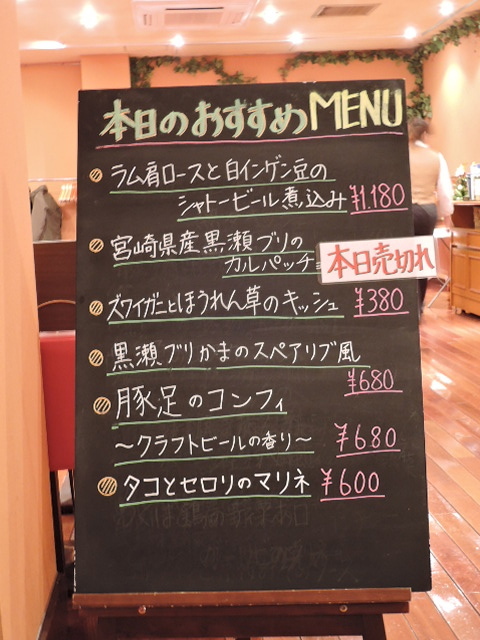 本日のおすすめMENU
ラム肩ロースと白インゲン豆の
シャトービール煮込み ¥1.180
宮崎県産黒瀬ブリの
カルパッチ 本日売切れ
ズワイガニとほうれん草のキッシュ ¥380
黒瀬ブリかまのスペアリブ風
¥680
豚足のコンフィ
〜クラフトビールの香り〜 ¥680
タコとセロリのマリネ ¥600